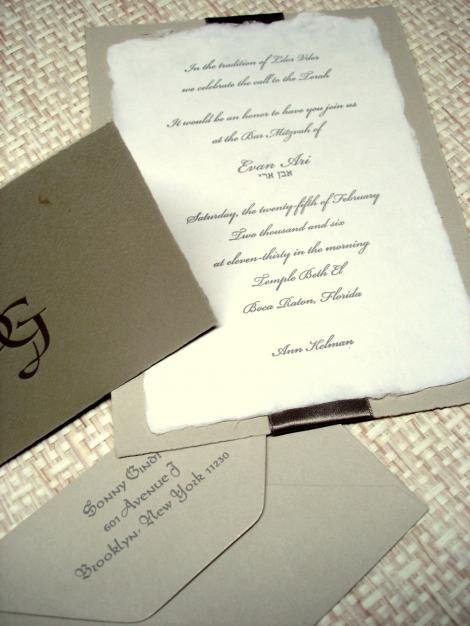 In the tradition of L'dor V'dor
we celebrate the call to the Torah
It would be an honor to have you join us
at the Bar Mitzvah of
Evan Ari
אבן ארי
Saturday, the twenty-fifth of February
Two thousand and six
at eleven-thirty in the morning
Temple Beth El
Boca Raton, Florida
Ann Kelman
G
Sonny Gindi
601 Avenue J
Brooklyn, New York 11230